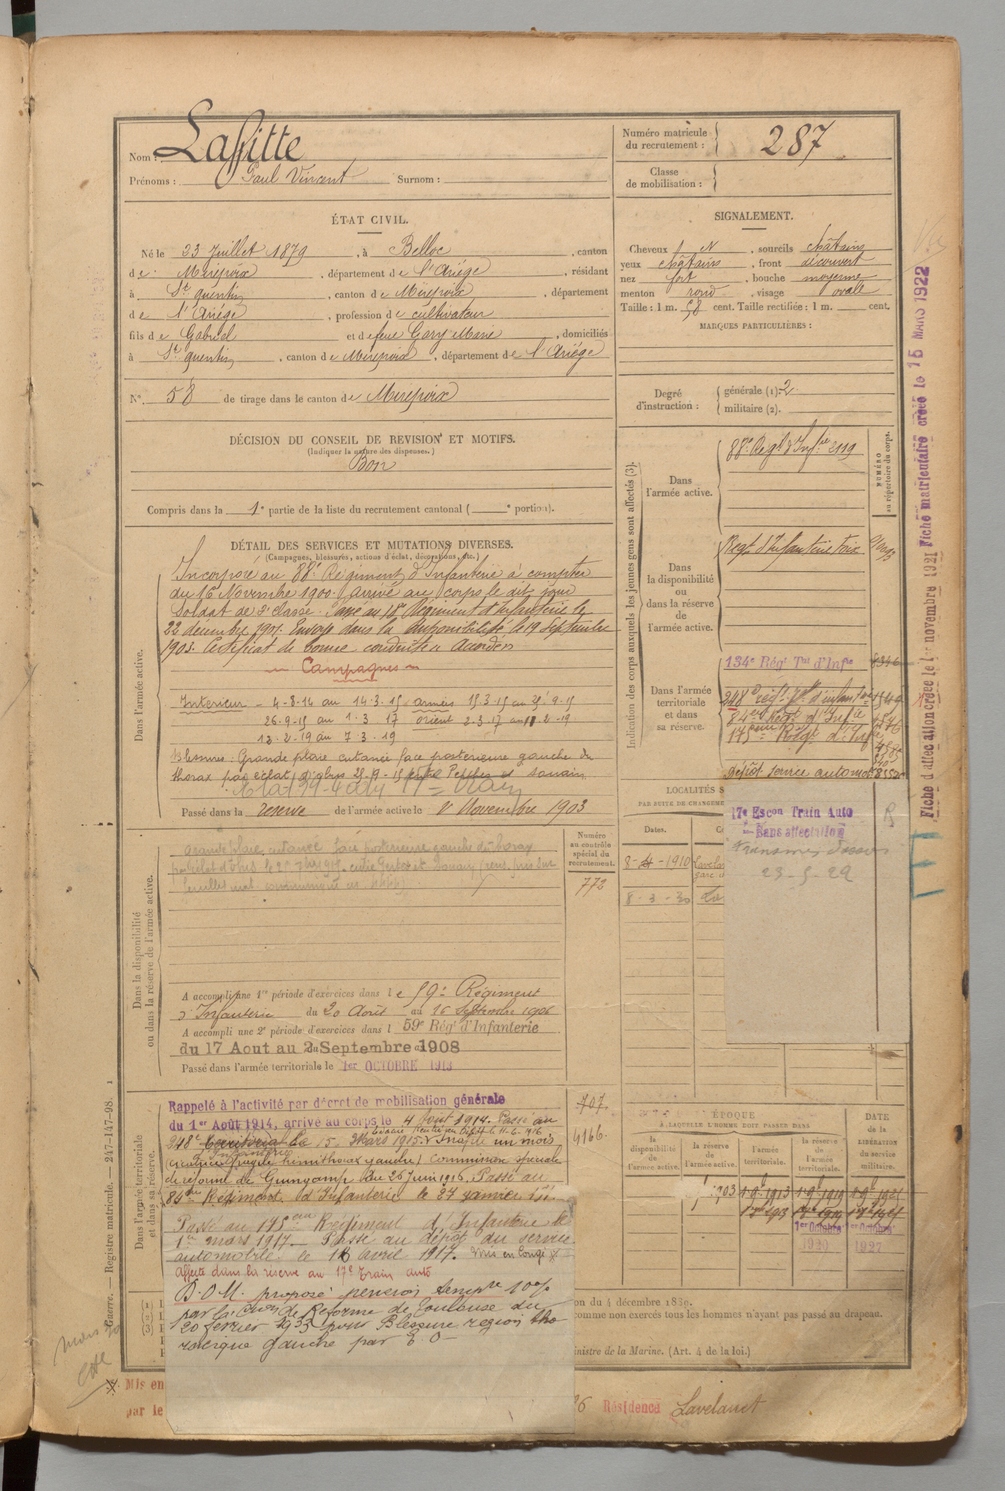 Nom : Lafitte
Prénoms : Paul Vincent Surnom :
Numéro matricule du recrutement : 287
Classe de mobilisation :
ÉTAT CIVIL.
Né le 23 Juillet 1879, à Belloc, canton
de Mirepoix, département de l'Ariége, résidant
à St quentin, canton de Mirepoix, département
de l'Ariége, profession de cultivateur
fils de Gabriel et de feue Gary Marie, domiciliés
à St quentin, canton de Mirepoix, département de l'Ariége
N° 58 de tirage dans le canton de Mirepoix
SIGNALEMENT.
Cheveux N, sourcils châtains
yeux châtains, front découvert
nez fort, bouche moyenne
menton rond, visage ovale
Taille : 1 m. 58 cent. Taille rectifiée : 1 m. cent.
MARQUES PARTICULIÈRES :
Degré d'instruction : générale (1). 2
militaire (2).
DÉCISION DU CONSEIL DE REVISION ET MOTIFS.
(Indiquer la nature des dispenses.)
Bon
Compris dans la 1e partie de la liste du recrutement cantonal ( e portion).
DÉTAIL DES SERVICES ET MUTATIONS DIVERSES.
(Campagnes, blessures, actions d'éclat, décorations, etc.)
Dans l'armée active.
Incorporé au 88e Régiment d'Infanterie à compter
du 16 Novembre 1900. Arrivé au corps le dit jour
Soldat de 2e classe. Passé au 18e Régiment d'Infanterie le
22 décembre 1901. Envoyé dans la disponibilité le 19 Septembre
1903. Certificat de bonne conduite accordé
Campagnes
Interieur - 4-8-14 au 14-3-15 armées 15-3-15 au 25-9-15
26-9-15 au 1-3-17 orient 2-3-17 au 11-2-19
12-2-19 au 7-3-19
Blessure : Grande plaie cutanée face posterieure gauche du
thorax par éclat d'obus 25-9-15 entre Perthes et Souain
Passé dans la reserve de l'armée active le 1er Novembre 1903
Indication des corps auxquels les jeunes gens sont affectés (3).
NUMÉRO au répertoire du corps.
Dans l'armée active.
88e Régt d'Infie 2119
Dans la disponibilité ou dans la réserve de l'armée active.
Regt d'Infanterie Foix
Dans l'armée territoriale et dans sa réserve.
134e Régt Tal d'Infie
248e régt d'infant
84e Régt d'Infie
175eme Régt d'Infie
dépôt service automob 8352
17e Escon Train Auto
Sans affectation
23-5-29
LOCALITÉS S
PAR SUITE DE CHANGEME
Dates.
8-4-1910 Lavelan
8-3-30
Dans la disponibilité ou dans la réserve de l'armée active.
Numéro au contrôle spécial du recrutement.
773
Grande plaie cutanée face posterieure gauche du thorax
A accompli une 1re période d'exercices dans le 59e Régiment
d'Infanterie du 20 Août au 16 Septembre 1906
A accompli une 2e période d'exercices dans l 59e Régt d'Infanterie
du 17 Aout au 2 Septembre 1908
Passé dans l'armée territoriale le 1er OCTOBRE 1913
Dans l'armée territoriale et dans sa réserve.
707
4166.
Rappelé à l'activité par décret de mobilisation générale
du 1er Août 1914, arrivé au corps le 4 Août 1914. Passé au
248e Territorial d'Infanterie le 15 Mars 1915. Inapte un mois
(cicatrice fragile hemithorax gauche) commission spéciale
de réforme de Guingamp du 26 juin 1916. Passé au
84me Régiment d'Infanterie le 27 janvier
Passé au 175eme Régiment d'Infanterie le
1er mars 1917. Passé au dépôt du service
automobile le 16 avril 1917. Mis en congé
Affecté dans la réserve au 17e train auto
P.O.M. proposé pension tempre 10%
par la Cion de Réforme de Toulouse du
20 fevrier 1935 pour Blessure region tho
racique gauche par E O
ÉPOQUE
À LAQUELLE L'HOMME DOIT PASSER DANS
la disponibilité de l'armée active.
la réserve de l'armée active.
l'armée territoriale.
la réserve de l'armée territoriale.
DATE de la LIBÉRATION du service militaire.
1903 1.9.1913 1.9.1919 1.9.1925
1er Octobre 1920
1er Octobre 1927
on du 4 décembre 1889.
comme non exercés tous les hommes n'ayant pas passé au drapeau.
inistre de la Marine. (Art. 4 de la loi.)
Mis en
par le
Résidence Lavelanet
Guerre. — Registre matricule. — 247-147-98.
Fiche d'affectation créée le 1er novembre 1921 Fiche matriculaire créée le 15 MARS 1922